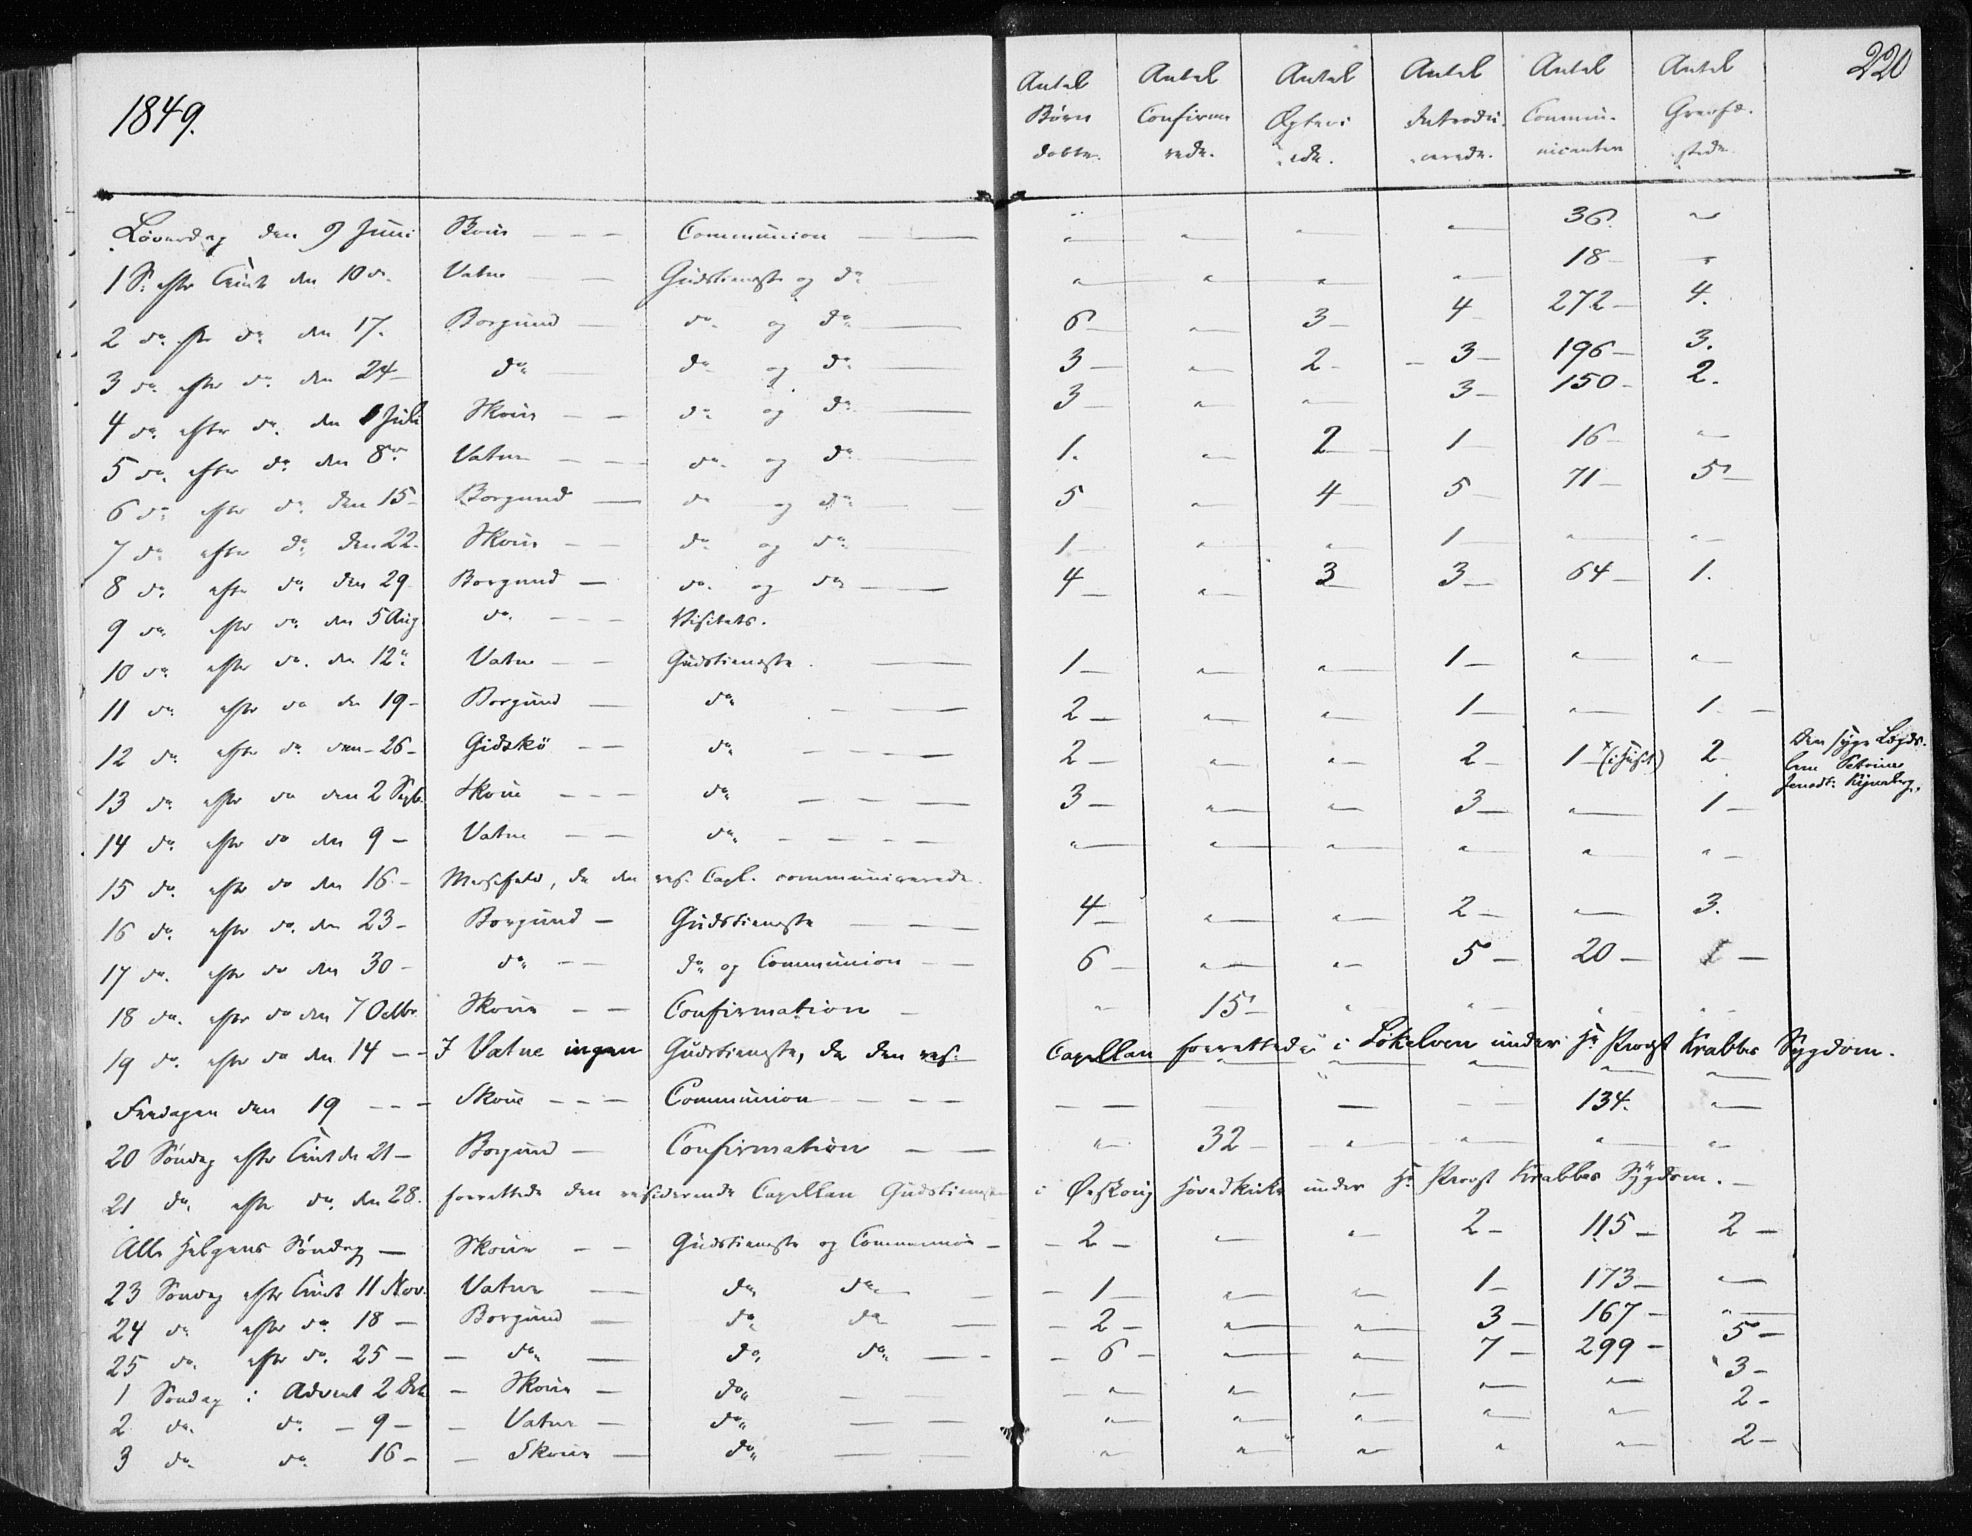 1849.
220
Antal Børn døbte. Antal Confirmerede. Antal Ægteviede. Antal Introducerede. Antal Communicanter Antal Gravfæstede.
Løverdag den 9 Juni Skoue - - - Communion — „ „ „ „ 36. „
1 S: efter Trinit den 10 do. Vatne - - Gudstieneste og do „ „ „ „ 18 - „
2 do efter do den 17. Borgund — do og do — 6 - „ 3 - 4 - 272 - 4.
3 do efter do den 24 - do — do og do — 3 - „ 2 - 3 - 196 - 3.
4 do efter do den 1 Juli Skoue - - do og do — 3 - „ „ 3 - 150 - 2.
5 do efter do den 8de Vatne - - do og do — 1. „ 2 - 1 - 16 - „
6 do efter do den 15 - Borgund — do og do — 5 „ 4 - 5 - 71 - 5 -
7 do efter do den 22. Skoue - - do og do — 1 - „ „ 1 - „ „
8 do efter do den 29 Borgund — do og do — 4 - „ 3 3 - 64 - 1.
9 do efter do den 5 Aug. do. - - - Visitats.
10 do efter do den 12te Vatne - - Gudstieneste. — 1 - „ „ 1 - „ „
11 do efter do den 19 - Borgund — do - - - 2 - „ „ 1 - „ 1. -
12 do efter do den - 26 - Gidskø - - do - - - - 2 - „ „ 2 - 1 - x (i Huset) 2 Den syge Lægds-
13 do efter do den 2 Septb. Skoue - - - do - - - 3 - „ „ 3 - „ 1 -
14 do efter do den 9 - Vatne - - do - - - - „ „ „ „ „ „
15 do efter do den 16 - Messefald, da den res. Capl. communicerede.
16 do efter do den 23 - Borgund - Gudstieneste - - - 4 - „ „ 2 - „ 3.
17 do efter do den 30 - do - - do og Communion - - 6 - „ „ 5 - 20 - 1 -
18 do. efter do den 7 Octbr. Skoue - - Confirmation - „ 15 - „ „ „ „
19 do. efter do den 14 - - I Vatne ingen Gudstieneste, da den res: Capellan forrettede i Søkelven under Hr Provst Krabbes Sygdom.
Fredagen den 19 - - - Skoue - - - Communion - - - - 134. „
20 Søndag efter Trinit den 21 - Borgund - Confirmation - - „ 32 - „ „ „ „
21 do efter do den 28. forrettede den residerende Capellan Gudstienesten i Ørskoug Hovedkirke under Hr Provst Krabbes Sygdom. -
Alle Helgens Søndag — Skoue - - Gudstieneste og Communion - - 2 - „ „ 2 - 115 - 2 -
23 Søndag efter Trinit 11 Nov. Vatne — do do - - 1 - „ „ 1 - 173 - „
24 do efter do 18 - Borgund — do do - - 2 - „ „ 3 - 167 - „
25 do. efter do. 25 - - do — do do - - - 6 - „ „ 7 - 299 - 5 -
1 Søndag i Advent 2 Dec. - Skoue - do - „ „ „ „ „ 3 -
2 do. do. - 9 - - Vatne - do - - „ „ „ „ „ 2 -
3 do do. 16 - - Skoue - do - - „ „ „ „ „ 2 -